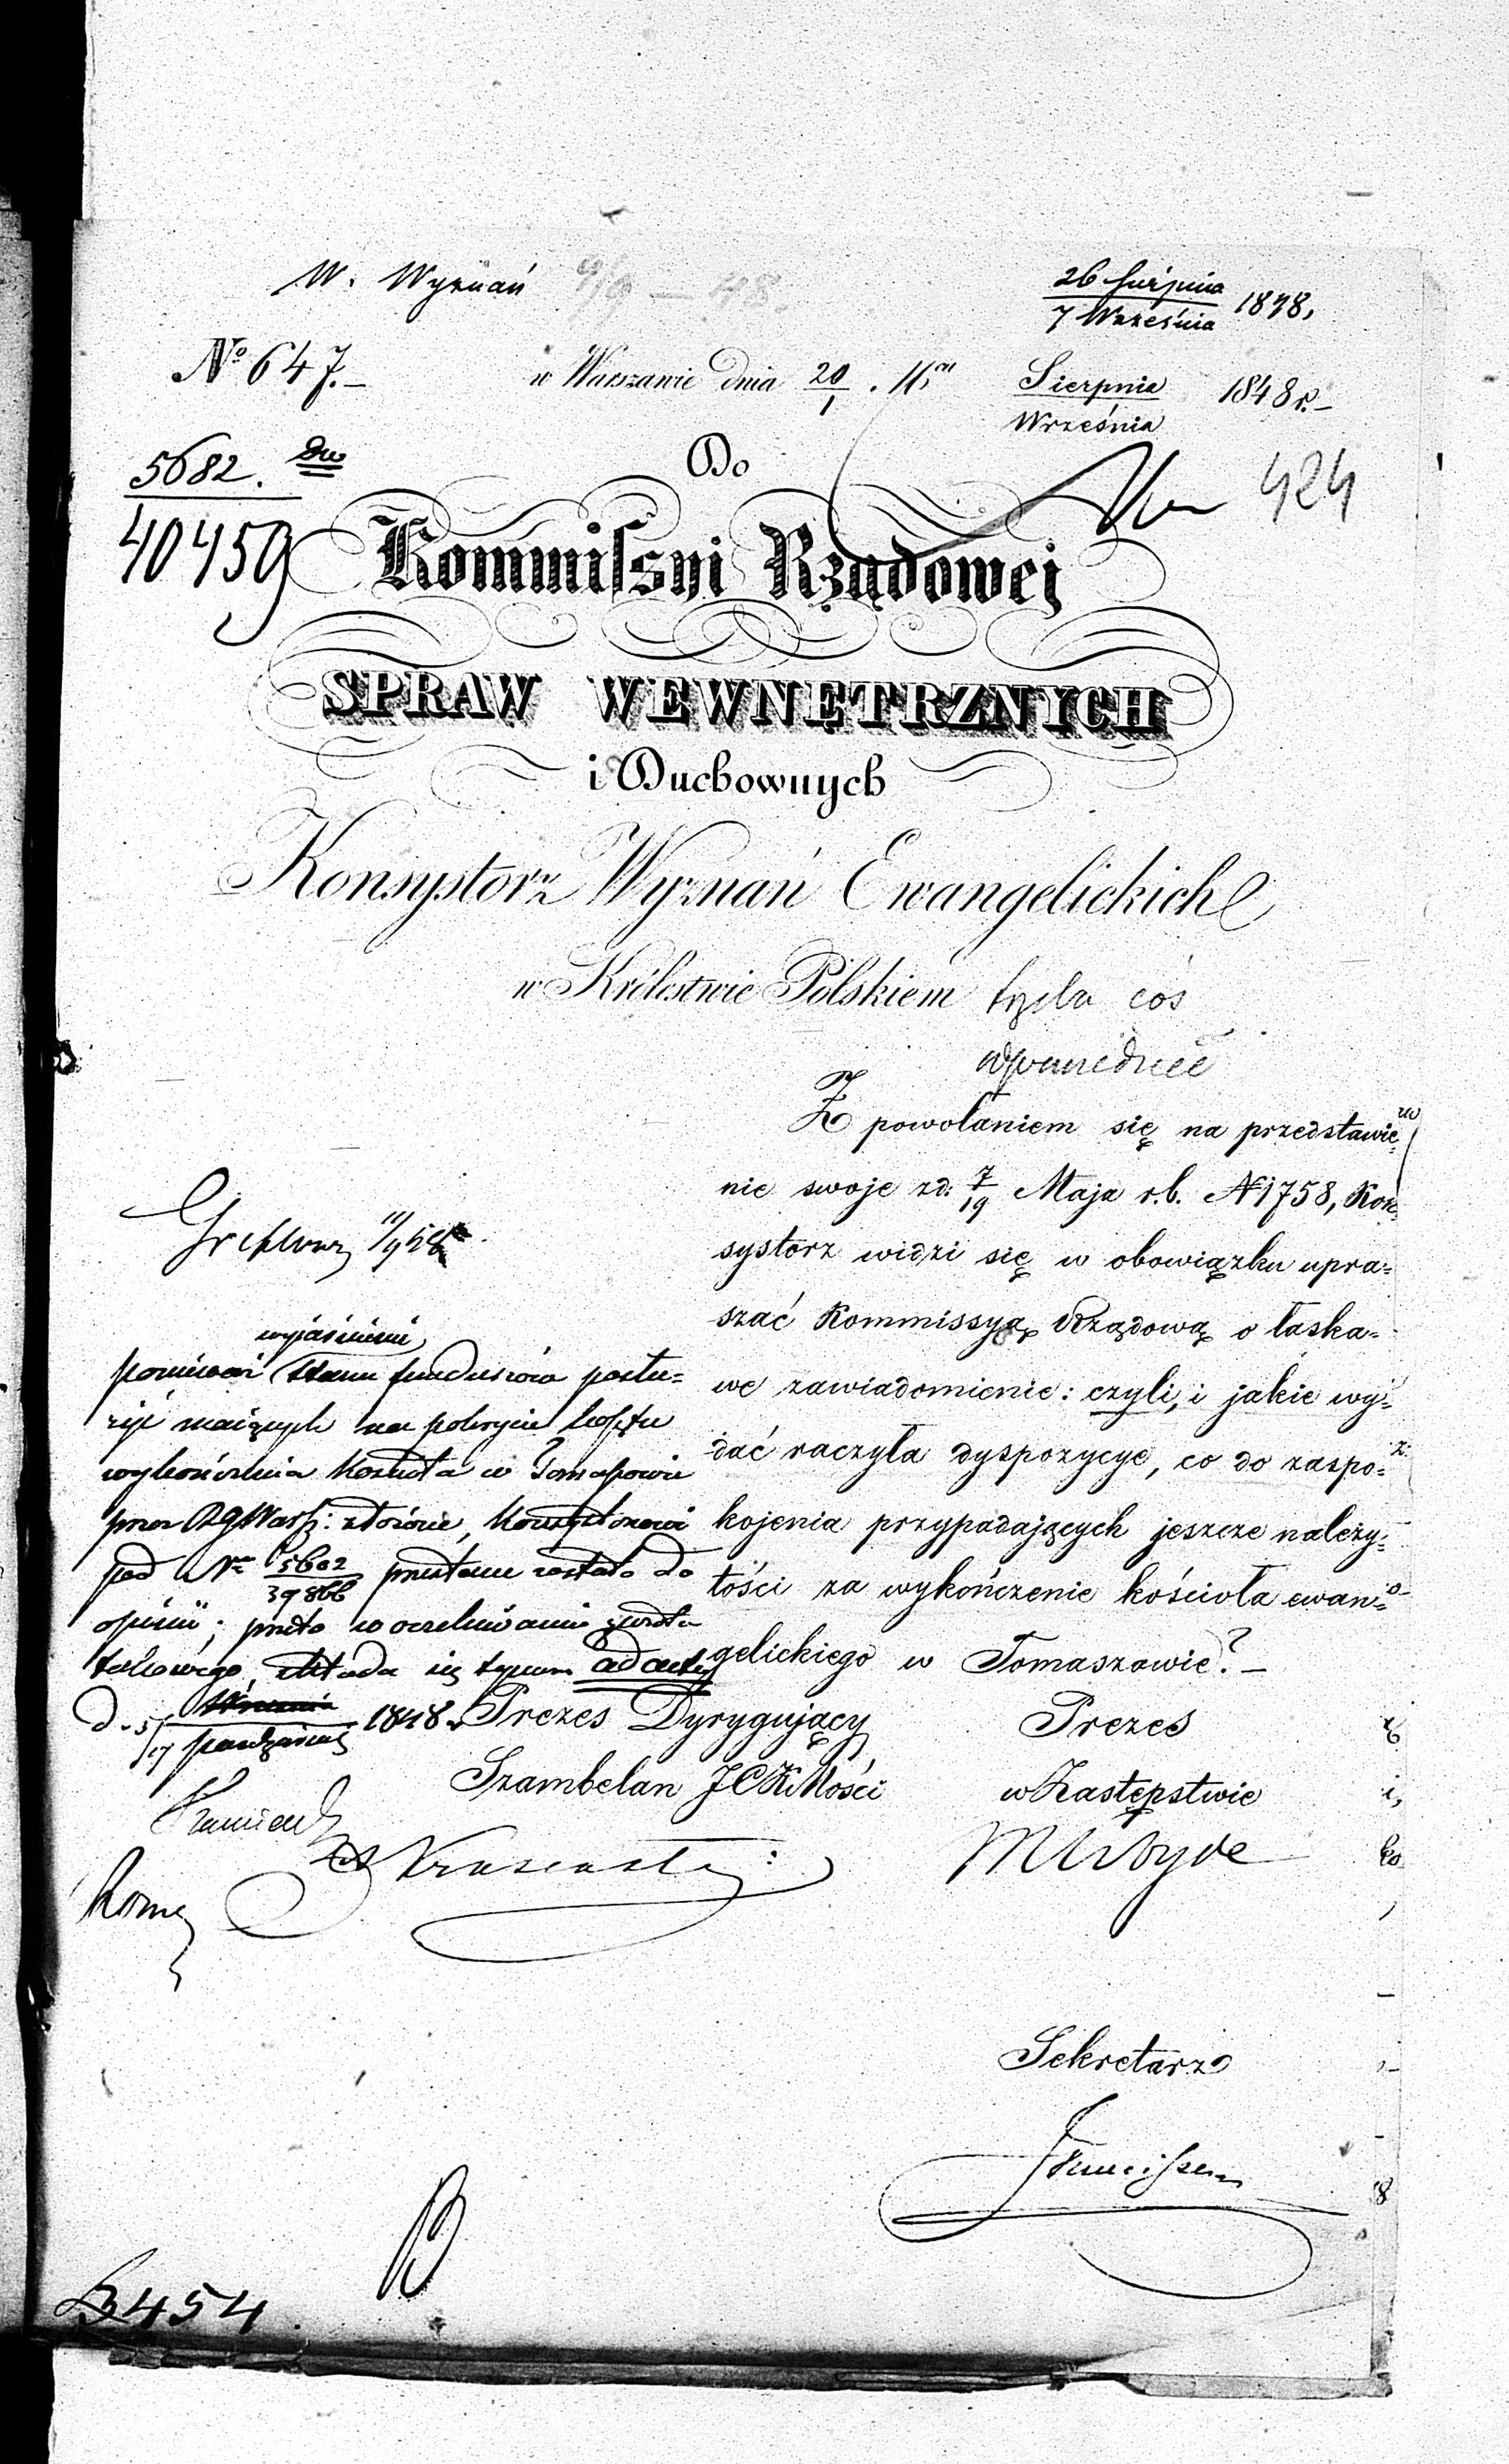 W. Wyznań
26 Sierpnia
7 Września 1848,
No 647.-
w Warszawie dnia 20/1 . Sierpnia
Września 1848 r.-
5682.
40459
Do
424
Kommissyi Rządowej
SPRAW WEWNĘTRZNYCH
i Duchownych
Konsystorz Wyznań Ewangelickich
w Królestwie Polskiem
coś
Z powołaniem się na przedstawie-
nie swoje zd. 7/19 Maja r.b. N 1758, Kon-
systorz widzi się w obowiązku upra-
szać Kommissyą Rządową o łaska-
we zawiadomienie: czyli, i jakie wy-
dać raczyła dyspozycye, co do zaspo-
kojenia przypadających jeszcze należy-
tości za wykończenie kościoła ewan-
gelickiego w Tomaszowie?-
11/9 48
wyjaśnienie
ponieważ stanu funduszów posłu-
żyć mających na pokrycie kosztu
wykończenia Kościoła w Tomaszowie
przez RGWarsz: złożone, Konsystorzowi
pod Nr 5602/39866 przesłane zostało do
opinii; przeto w oczekiwaniu zwrotu
takowego, składa się tymcz ad acta
d. 5/17 Września
Października 1848.
Prezes Dyrygujący
Szambelan JCKMości
Prezes
w Zastępstwie
Sekretarz
B454.